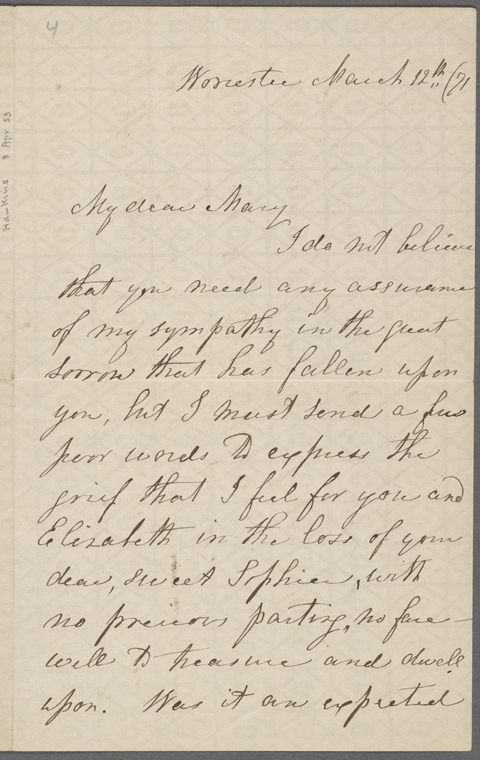 4
Worcester March 12th (71
My dear Mary
I do not believe
that you need any assurance
of my sympathy in the great
sorrow that has fallen upon
you, but I must send a few
poor words to express the
grief that I feel for you and
Elizabeth in the loss of your
dear, sweet Sophia, with
no previous parting, no fare-
well to treasure and dwell
upon. Was it an expected
Hawkins 3 Apr 53